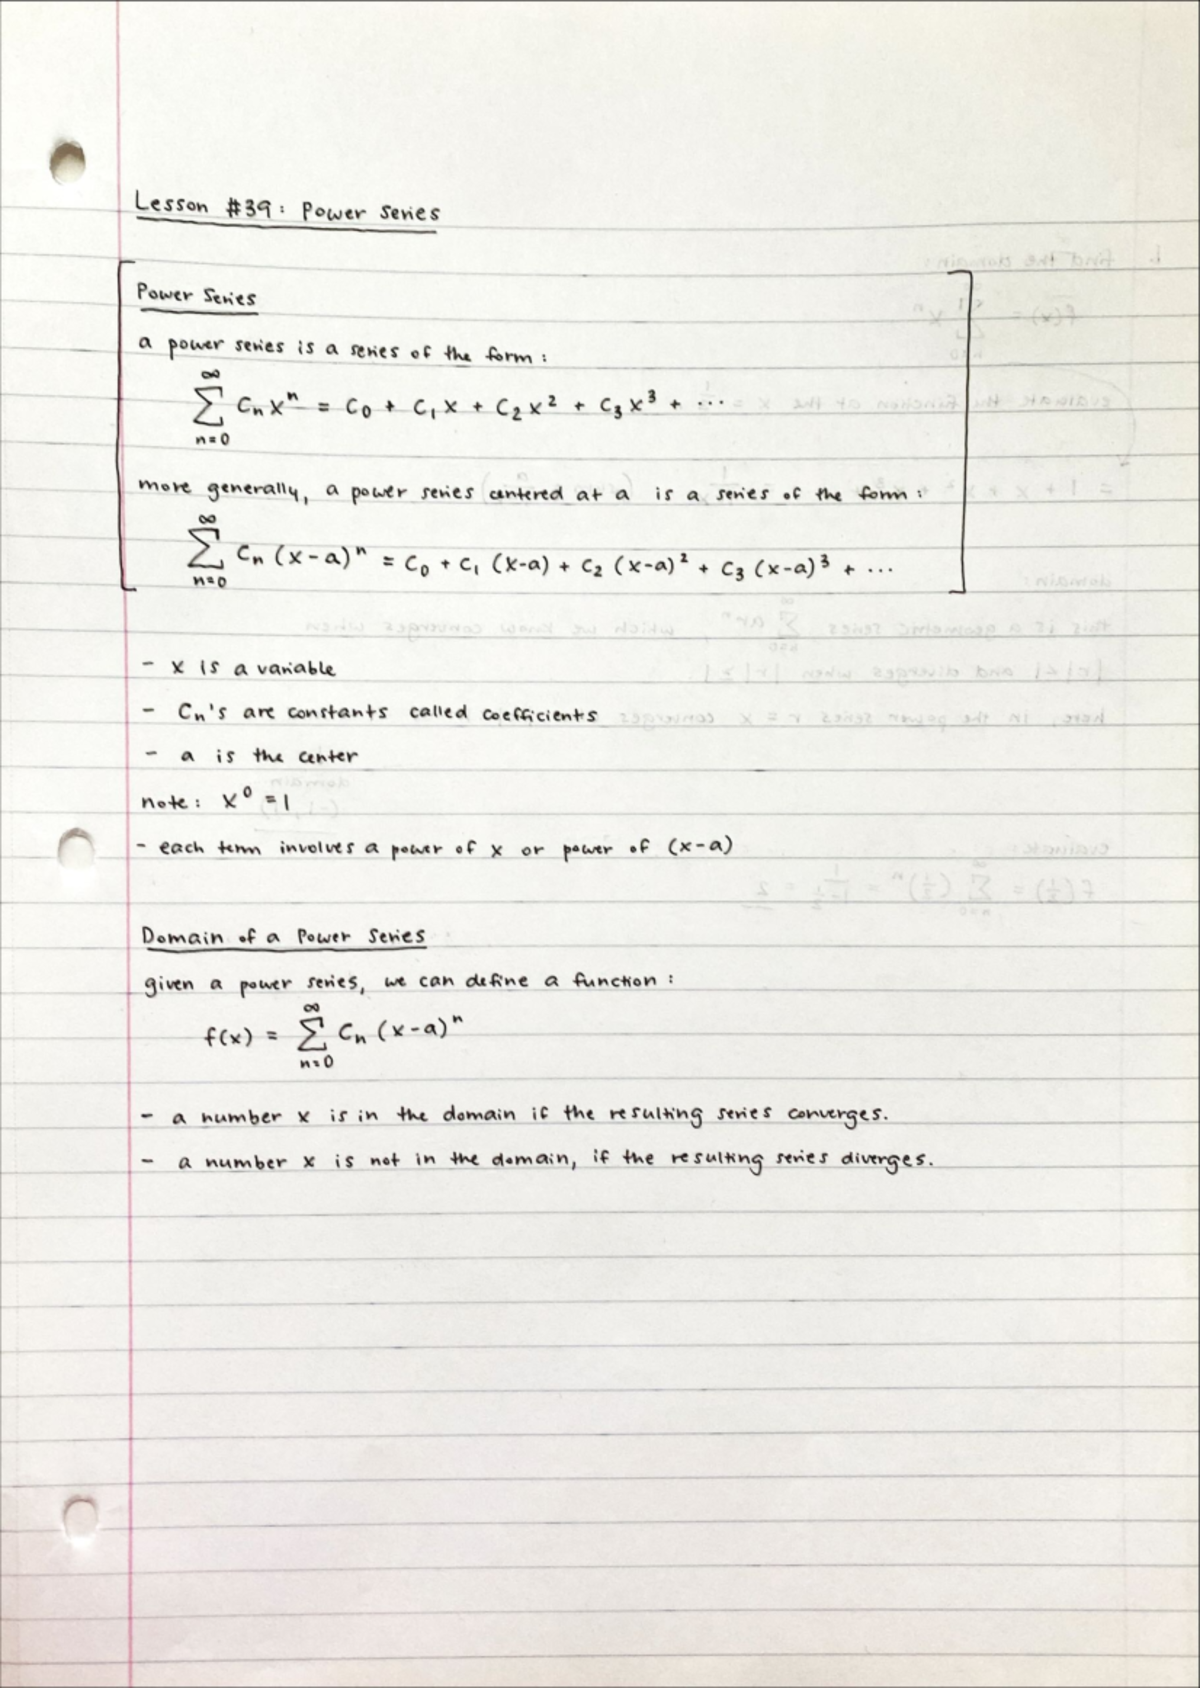 Lesson #39: Power Series
Power Series
a power series is a series of the form:
∞
∑ Cₙxⁿ = C₀ + C₁x + C₂x² + C₃x³ + ...
n=0
more generally, a power series centered at a is a series of the form:
∞
∑ Cₙ(x-a)ⁿ = C₀ + C₁(x-a) + C₂(x-a)² + C₃(x-a)³ + ...
n=0
- x is a variable
- Cₙ's are constants called coefficients
- a is the center
note: x⁰ = 1
- each term involves a power of x or power of (x-a)
Domain of a Power Series
given a power series, we can define a function:
∞
f(x) = ∑ Cₙ(x-a)ⁿ
n=0
- a number x is in the domain if the resulting series converges.
- a number x is not in the domain, if the resulting series diverges.